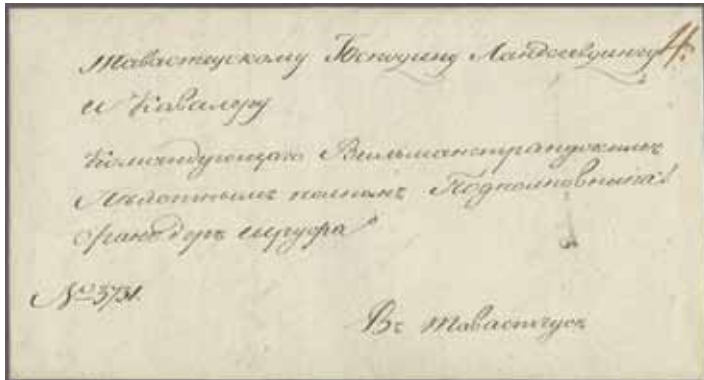 Тавастгускому Господину Ландсевдингу 4.
и Кавалеру
Командующаго Вильманстрандскимъ
Пѣхотнымъ полкомъ Подполковника
№ 3731.
Въ Тавастгусъ